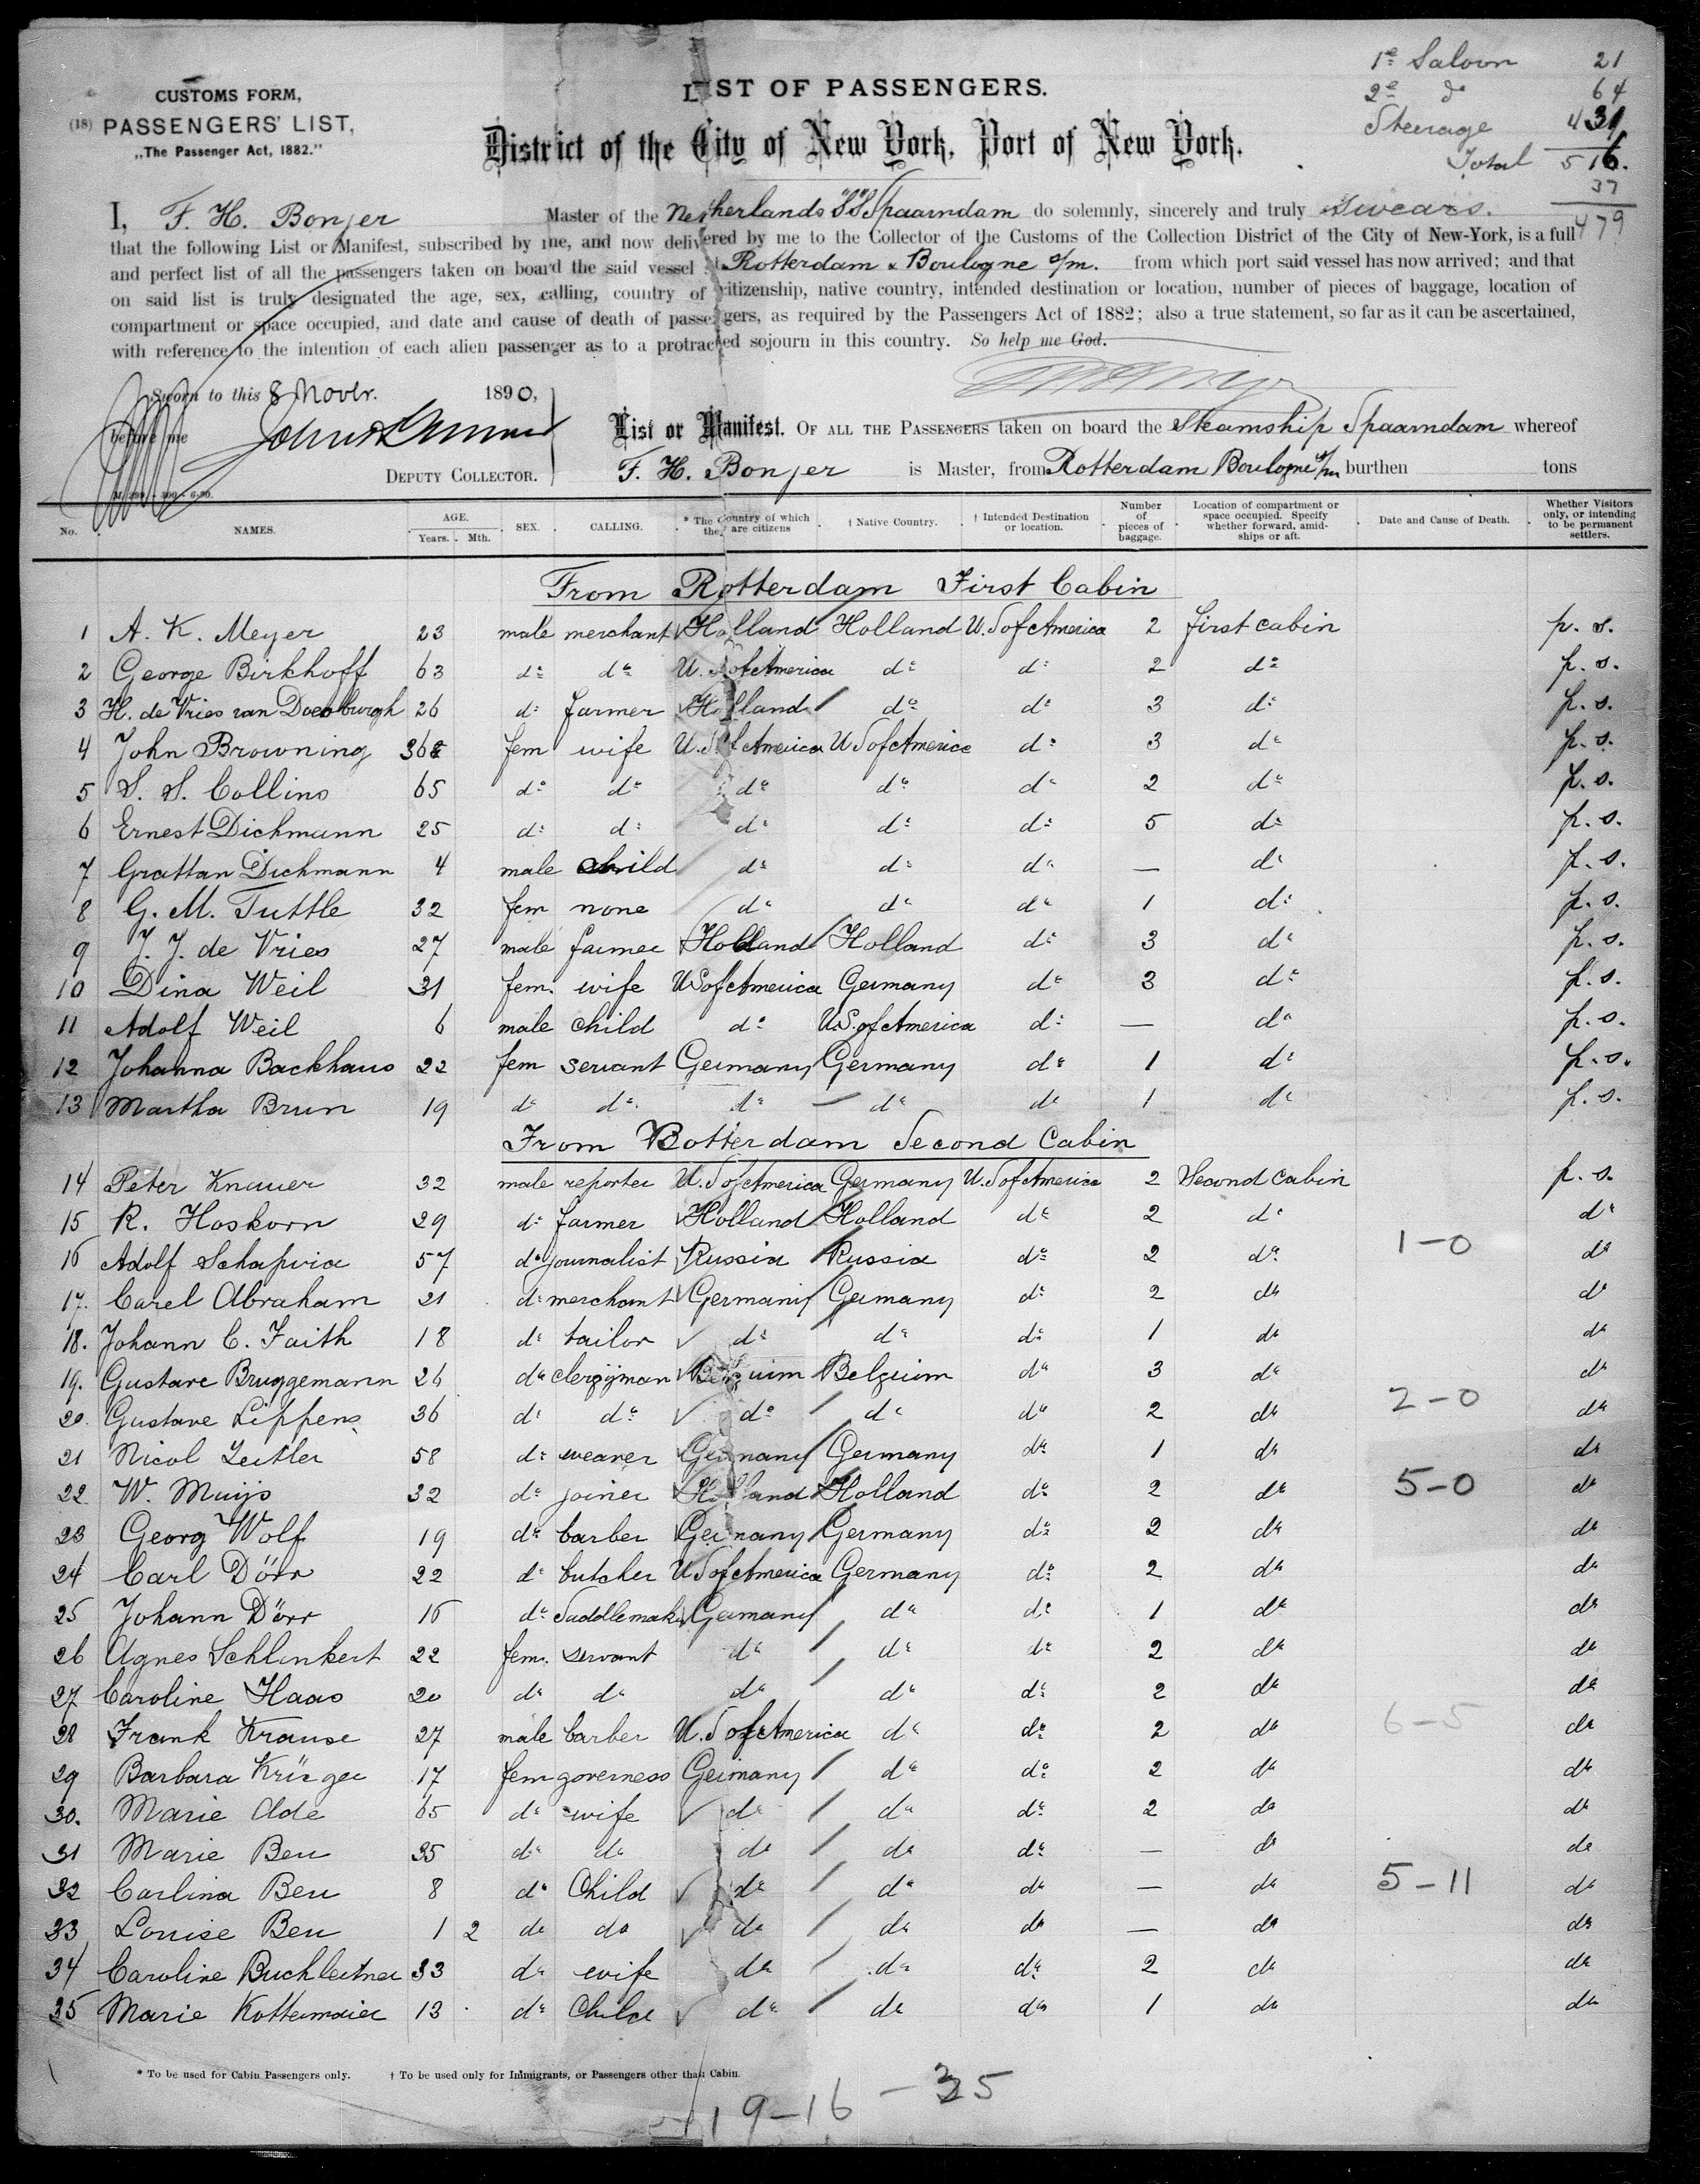 1e Saloon 21
2e do 64
Steerage 431
Total 516.
37
479
CUSTOMS FORM,
(18) PASSENGERS' LIST,
„The Passenger Act, 1882."
LIST OF PASSENGERS.
District of the City of New York, Port of New York.
I, F. H. Bonjer Master of the Netherlands SS Spaarndam do solemnly, sincerely and truly swears.
that the following List or Manifest, subscribed by me, and now delivered by me to the Collector of the Customs of the Collection District of the City of New-York, is a full
and perfect list of all the passengers taken on board the said vessel at Rotterdam & Boulogne s/m. from which port said vessel has now arrived; and that
on said list is truly designated the age, sex, calling, country of citizenship, native country, intended destination or location, number of pieces of baggage, location of
compartment or space occupied, and date and cause of death of passengers, as required by the Passengers Act of 1882; also a true statement, so far as it can be ascertained,
with reference to the intention of each alien passenger as to a protracted sojourn in this country. So help me God.
Sworn to this 8 Novbr. 1890,
before me
DEPUTY COLLECTOR.
List or Manifest. OF ALL THE PASSENGERS taken on board the Steamship Spaarndam whereof
F. H. Bonjer is Master, from Rotterdam Boulogne s/m burthen tons
No. NAMES. AGE. Years. Mth. SEX. CALLING. * The Country of which they are citizens † Native Country. † Intended Destination or location. Number of pieces of baggage. Location of compartment or space occupied. Specify whether forward, amidships or aft. Date and Cause of Death. Whether Visitors only, or intending to be permanent settlers.
From Rotterdam First Cabin
1 A. K. Meyer 23 male merchant Holland Holland U.S of America 2 first cabin p. s.
2 George Birkhoff 63 do do U.S of America do do 2 do p. s.
3 H. de Vries van Doesburgh 26 do farmer Holland do do 3 do p. s.
4 John Browning 36 fem wife U.S of America U S of America do 3 do p. s.
5 S. S. Collins 65 do do do do do 2 do p. s.
6 Ernest Dichmann 25 do do do do do 5 do p. s.
7 Grattan Dichmann 4 male child do do do — do p. s.
8 G. M. Tuttle 32 fem none do do do 1 do p. s.
9 J. J. de Vries 27 male farmer Holland Holland do 3 do p. s.
10 Dina Weil 31 fem. wife U S of America Germany do 3 do p. s.
11 Adolf Weil 6 male child do U.S. of America do — do p. s.
12 Johanna Backhaus 22 fem servant Germany Germany do 1 do p. s.
13 Martha Brun 19 do do do do do 1 do p. s.
From Rotterdam Second Cabin
14 Peter Knauer 32 male reporter U.S of America Germany U.S of America 2 Second cabin p. s.
15 R. Hoskorn 29 do farmer Holland Holland do 2 do do
16 Adolf Schapvia 57 do journalist Russia Russia do 2 do 1-0 do
17. Carel Abraham 21 do merchant Germany Germany do 2 do do
18. Johann C. Faith 18 do tailor do do do 1 do do
19. Gustave Bruggemann 26 do clergyman Belguim Belguim do 3 do do
20. Gustave Lippens 36 do do do do do 2 do 2-0 do
21 Nicol Zeitler 58 do weaver Germany Germany do 1 do do
22 W. Muijs 32 do joiner Holland Holland do 2 do 5-0 do
23 Georg Wolf 19 do barber Germany Germany do 2 do do
24 Carl Dörr 22 do butcher U S of America Germany do 2 do do
25 Johann Dörr 16 do Saddlemak Germany do do 1 do do
26 Agnes Schlinkert 22 fem. servant do do do 2 do do
27 Caroline Haas 20 do do do do do 2 do do
28 Frank Krause 27 male barber U.S of America do do 2 do 6-5 do
29 Barbara Krüger 17 fem governess Germany do do 2 do do
30. Marie Ade 65 do wife do do do 2 do do
31 Marie Beu 35 do do do do do — do do
32 Carlina Beu 8 do Child do do do — do 5-11 do
33 Louise Beu 1 2 do do do do do — do do
34 Caroline Buchleitner 33 do wife do do do 2 do do
35 Marie Kottermaier 13 do Child do do do 1 do do
* To be used for Cabin Passengers only. † To be used only for Immigrants, or Passengers other than Cabin.
19-16 - 35